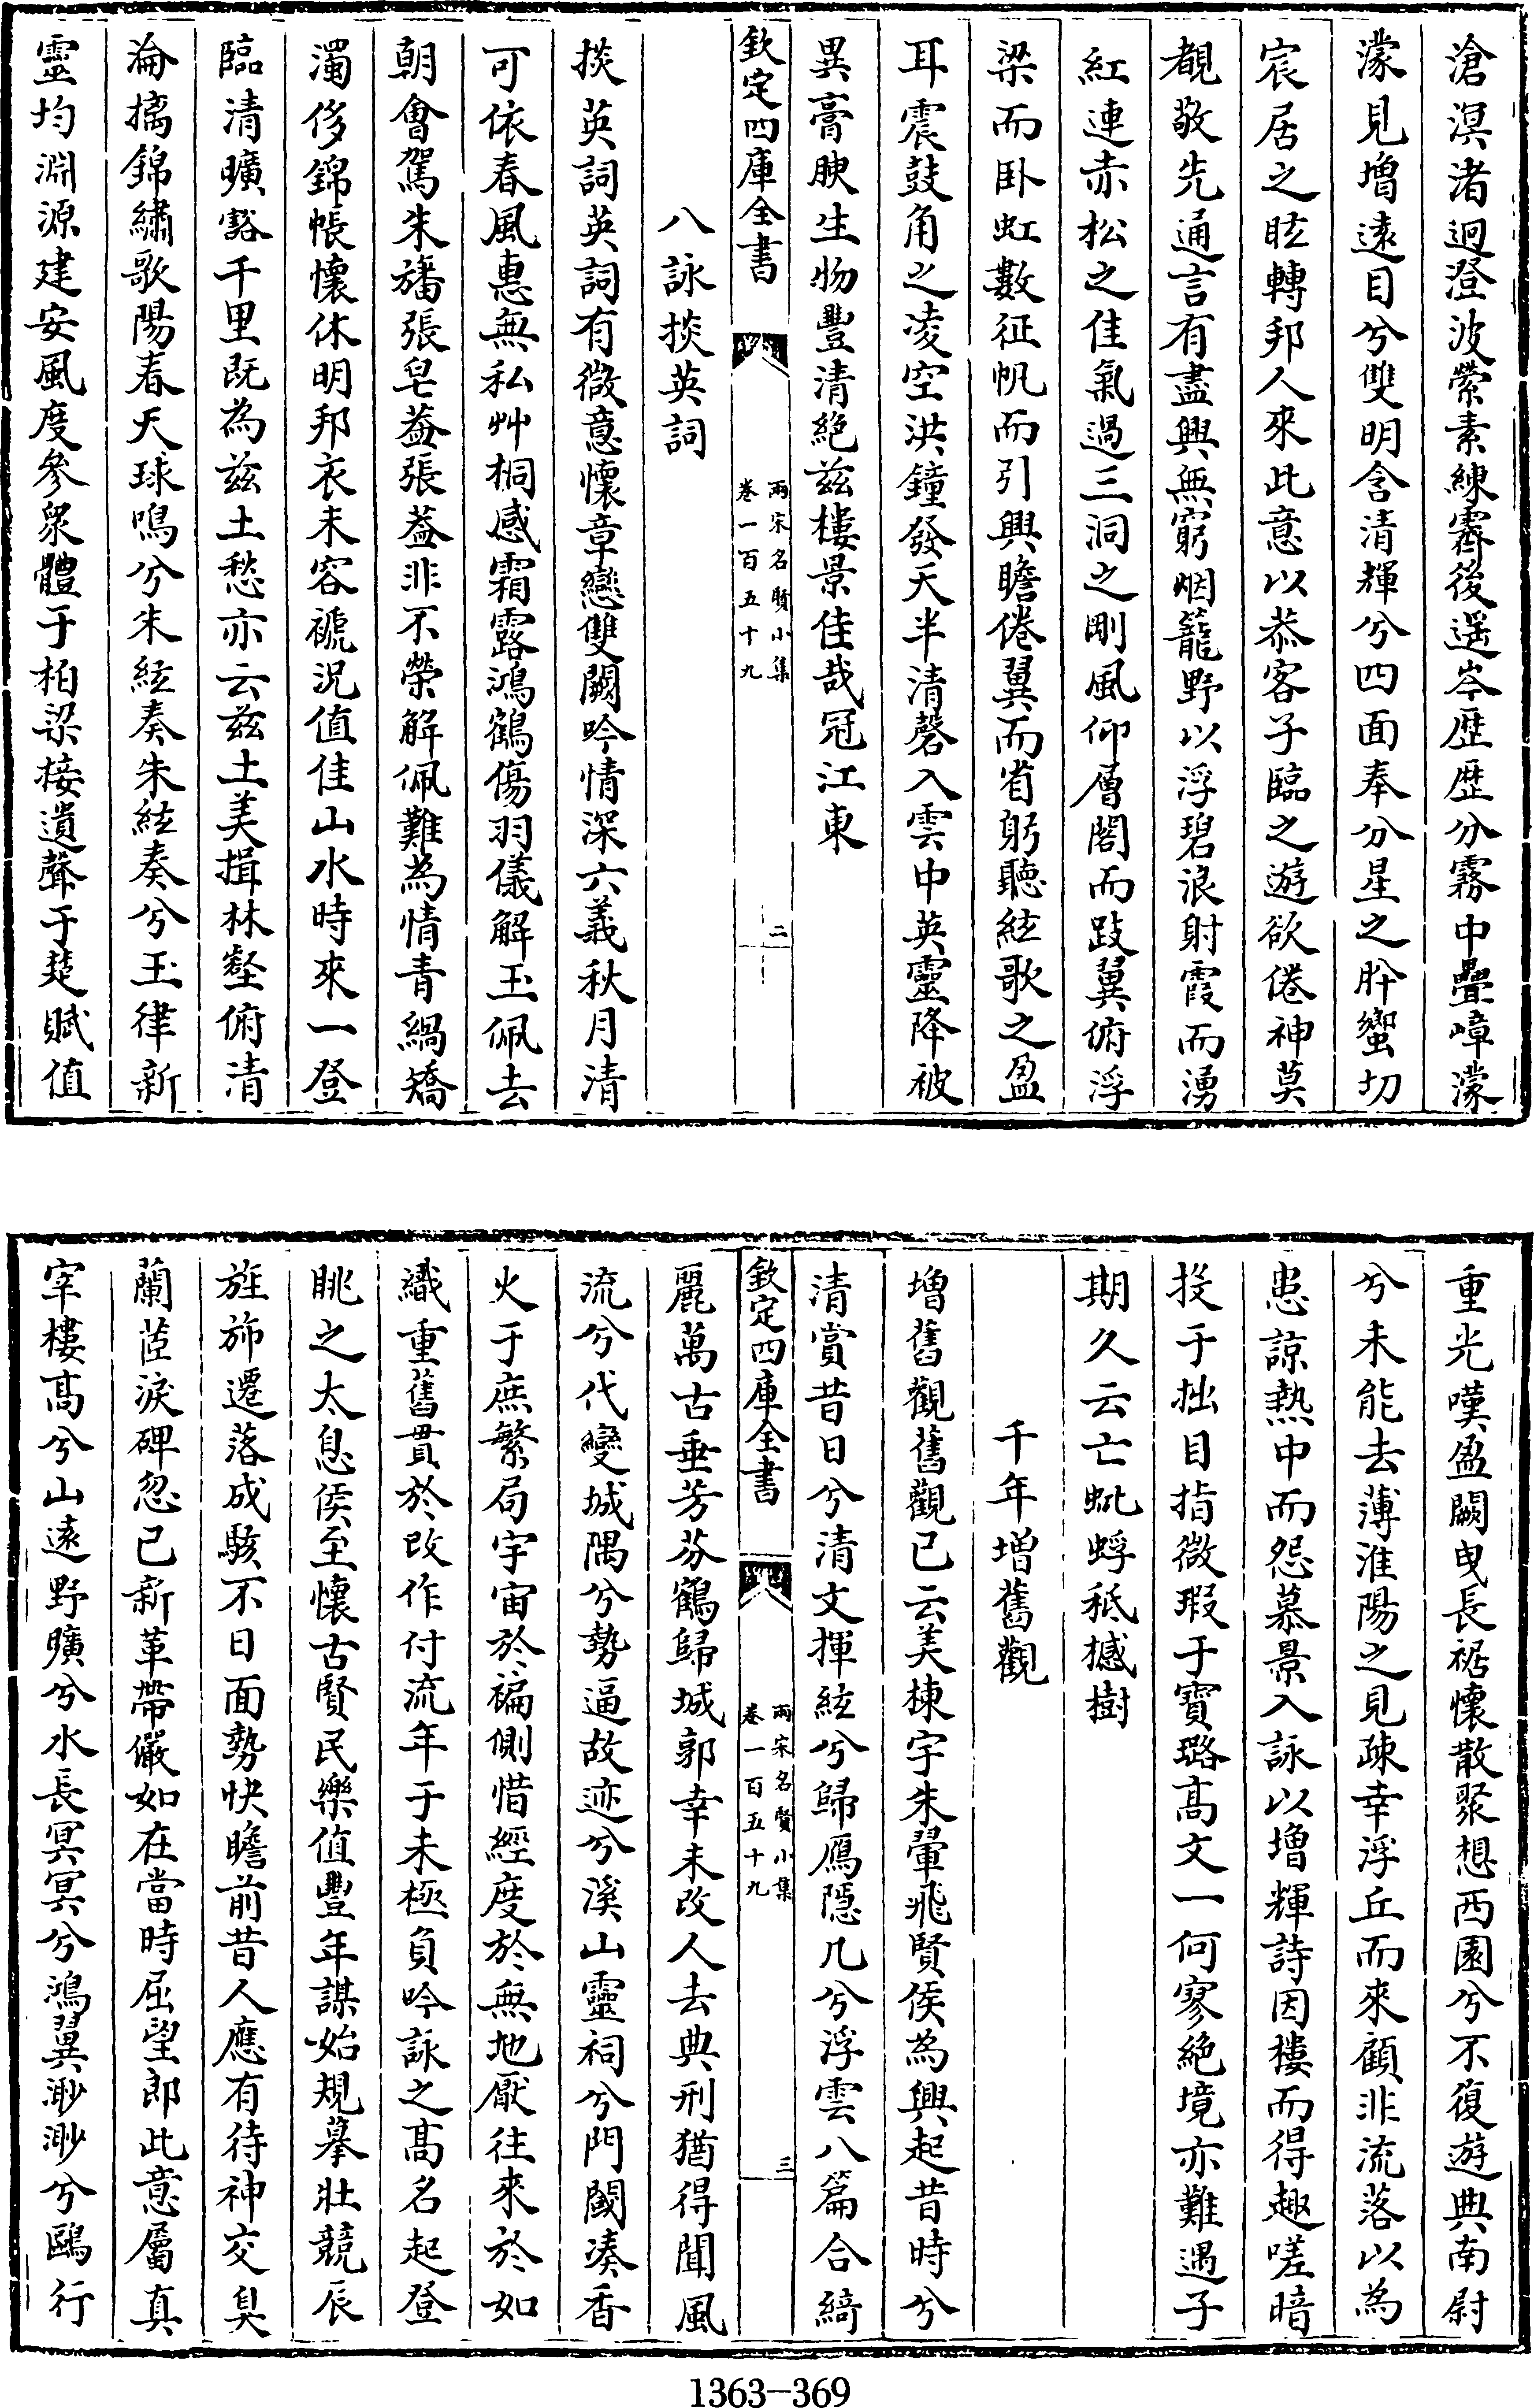 滄溟渚迥澄波縈素練霽後遥岑歴歴分霧中疊嶂濛
濛見増遠目兮雙明含清輝兮四面奉分星之肸蠁切
宸居之眩轉邦人來此意以恭客子臨之遊欲倦神莫
覩敬先通言有盡興無窮烟籠野以浮碧浪射霞而湧
紅連赤松之佳氣過三洞之剛風仰層閣而跂翼俯浮
梁而卧虹數征帆而引興瞻倦翼而省躬聽絃歌之盈
耳震鼓角之凌空洪鐘發天半清磬入雲中英靈降被
異膏腴生物豐清絶兹樓景佳哉冠江東
欽定四庫全書
兩宋名賢小集
卷一百五十九
二
八詠掞英詞
掞英詞英詞有微意懷章戀雙闕吟情深六義秋月清
可依春風恵無私艸桐感霜露鴻鶴傷羽儀解玉佩去
朝會駕朱旛張皂葢張葢非不榮解佩難為情青緺矯
濁侈錦帳懷休明邦衣未容褫況值佳山水時來一登
臨清曠豁千里既為兹土愁亦云兹土美揖林壑俯清
淪摛錦繡歌陽春天球鳴兮朱絃奏朱絃奏兮玉律新
靈均淵源建安風度參衆體于柏梁接遺聲于楚賦值
重光嘆盈闕曳長裾懷散聚想西園兮不復遊典南尉
兮未能去薄淮陽之見疎幸浮丘而來顧非流落以為
患諒熱中而怨慕景入詠以増輝詩因樓而得趣嗟暗
投于拙目指微瑕于寳璐髙文一何寥絶境亦難遇子
期久云亡蚍蜉秪撼樹
千年増舊觀
増舊觀舊觀已云美棟宇朱翬飛賢侯為興起昔時兮
清賞昔日兮清文揮絃兮歸鴈隠几兮浮雲八篇合綺
欽定四庫全書
兩宋名賢小集
卷一百五十九
三
麗萬古垂芳芬鶴歸城郭幸未改人去典刑猶得聞風
流兮代變城隅兮勢逼故迹兮溪山靈祠兮門閾凑香
火于庶繁局宇宙於褊側惜經度於無地厭往來於如
織重舊貫於改作付流年于未極負吟詠之髙名起登
眺之太息侯至懷古賢民樂值豐年謀始規摹壯競辰
旌斾遷落成駭不日面勢快瞻前昔人應有待神交臭
蘭茝淚碑忽已新革帶儼如在當時屈望郎此意屬真
宰樓髙兮山遠野曠兮水長冥冥兮鴻翼渺渺兮鷗行
1363-369